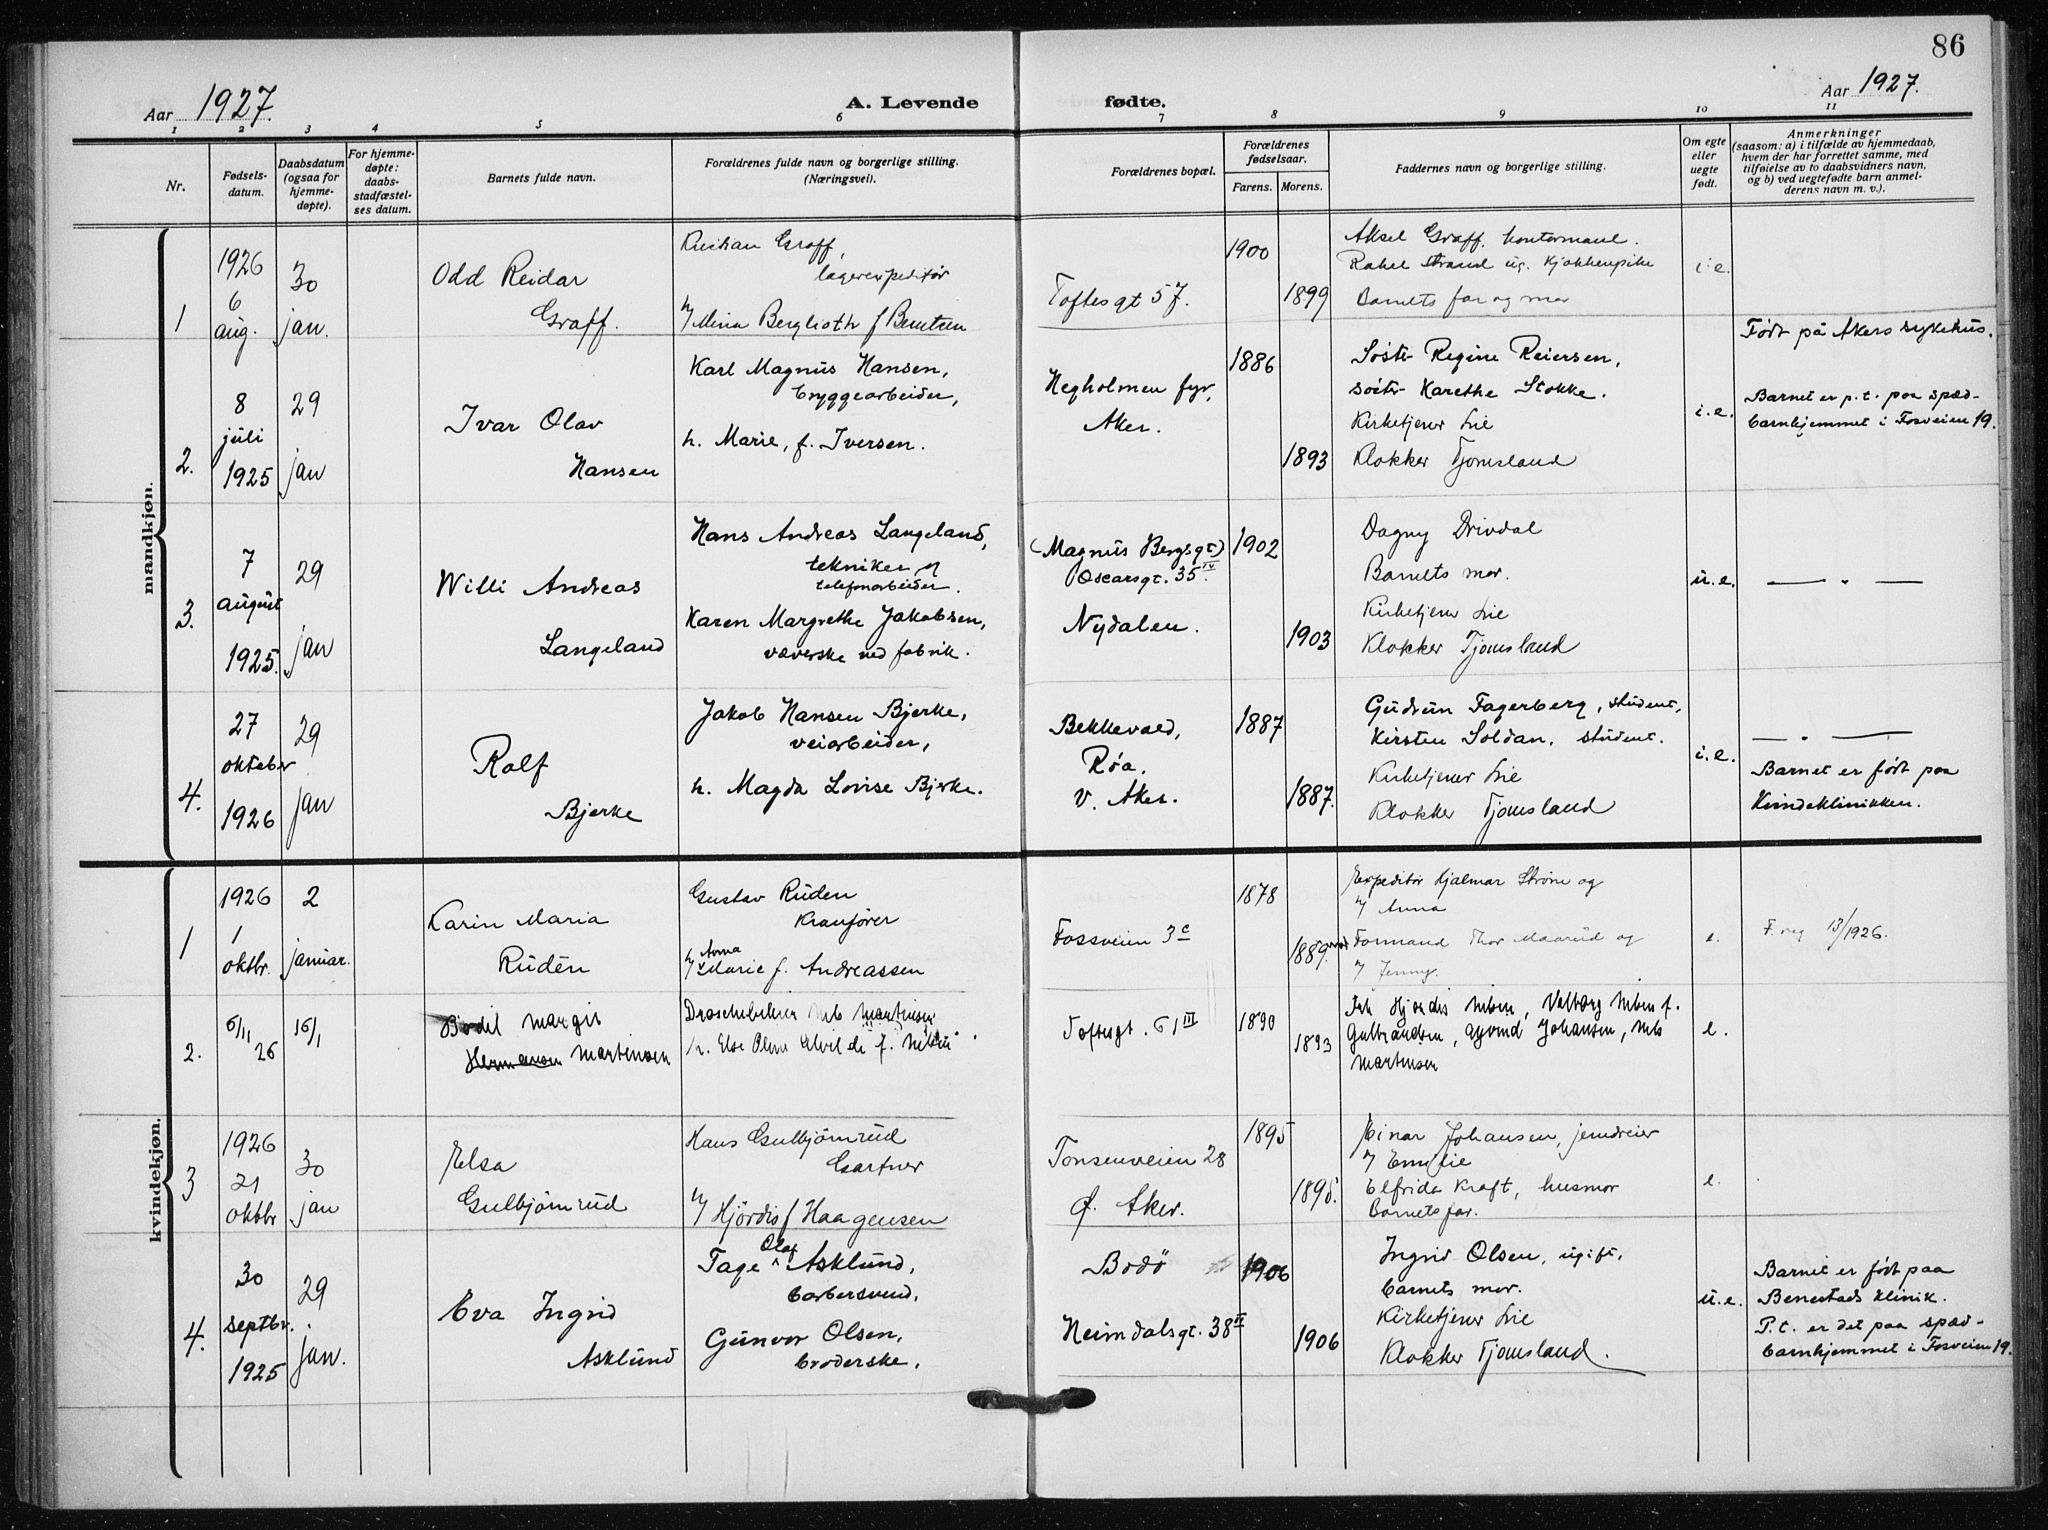 86
Aar 1927.
A. Levende
fødte.
Aar 1927.
1 2 3 4 5 6 7 8 9 10 11
Nr.
Fødsels-
datum.
Daabsdatum
(ogsaa for
hjemme-
døpte).
For hjemme-
døpte:
daabs-
stadfæstel-
ses datum.
Barnets fulde navn.
Forældrenes fulde navn og borgerlige stilling.
(Næringsvei).
Forældrenes bopæl.
Forældrenes
fødselsaar.
Farens. Morens.
Faddernes navn og borgerlige stilling.
Om egte
eller
uegte
født.
Anmerkninger
(saasom: a) i tilfælde av hjemmedaab,
hvem der har forrettet samme, med
tilføielse av to daabsvidners navn,
og b) ved uegtefødte barn anmel-
derens navn m. v.).
mandkjøn.
1
1926
6
aug.
30
jan.
Odd Reidar
Graff.
Graff,
lagerexpeditør
Mina Berglioth f Berntsen
Toftesgt 57.
1900
1899
Aksel Graff, kontormand.
Rakel Strand ug. Kjøkkenpike
Barnets far og mor
i.e.
2.
8
juli
1925
29
jan
Ivar Olav
Hansen
Karl Magnus Hansen,
bryggearbeider,
h. Marie, f. Iversen.
Hegholmen fyr,
Aker.
1886
1893
Søster Regine Reiersen,
søster Karethe Stokke.
Kirketjener Lie
Klokker Tjomsland
i.e.
Født på Akers sykehus.
Barnet er p.t. paa spæd-
barnhjemmet i Fosveien 19.
3.
7
august
1925.
29
jan
Willi Andreas
Langeland
Hans Andreas Langeland,
tekniker og
telefonarbeider.
Karen Margrethe Jakobsen,
væverske ved fabrik.
(Magnus Bergsgt)
Oscarsgt. 35 IV.
Nydalen.
1902
1903
Dagny Drivdal
Barnets mor.
Kirketjener Lie
Klokker Tjomsland
u.e.
— " —
4.
27
oktober
1926
29
jan
Rolf
Bjerke
Jakob Hansen Bjerke,
veiarbeider,
h. Magda Lovise Bjerke.
Bekkevold,
Røa.
V. Aker.
1887
1887.
Gudrun Fagerberg, student,
Kirsten Soldan, student.
Kirketjener Lie
Klokker Tjomsland
i.e.
— " —
Barnet er født paa
Kvindeklinikken.
kvindekjøn.
1
1926
1
oktbr.
2
januar.
Karin Maria
Rudén
Gustav Rudén
Kranfører
Anna
Marie f. Andreassen
Fossveien 3c
1878
1889
Expeditør Hjalmar Strøm og
Anna
Formand Thor Maarud og
Jenny.
e.
F. reg 13/1926.
2.
6/11
26
16/1
Bodil Margit
Hermansen Martinsen
Droschebileier Nils Martinsen
h. Else Oline Alvilde f. Nilsen
Toftesgt. 61 III
1890
1893
Frk Hjørdis Nilsen, Valborg Nilsen f.
Gulbrandsen, Øyvind Johansen, Nils
Martinsen
e.
3
1926
21
oktbr
30
jan
Elsa
Gulbjørnrud
Hans Gulbjørnrud
Gartner
Hjørdis f Haagensen
Tonsenveien 28
Ø. Aker.
1895
1895.
Einar Johansen, jerndreier
Emilie
Elfrida Kraft, husmor
Barnets far.
e.
4.
30
septbr.
1925
29
jan.
Eva Ingrid
Asklund
Tage Olaf Asklund,
barbersvend,
Gunvor Olsen,
broderske,
Bodø
Heimdalsgt. 38 IV
1906
1906
Ingrid Olsen, ugift,
barnets mor.
Kirketjener Lie
Klokker Tjomsland.
u.e.
Barnet er født paa
Benestads klinik.
P.t. er det paa spæd-
barnhjemmet i Fosveien 19.